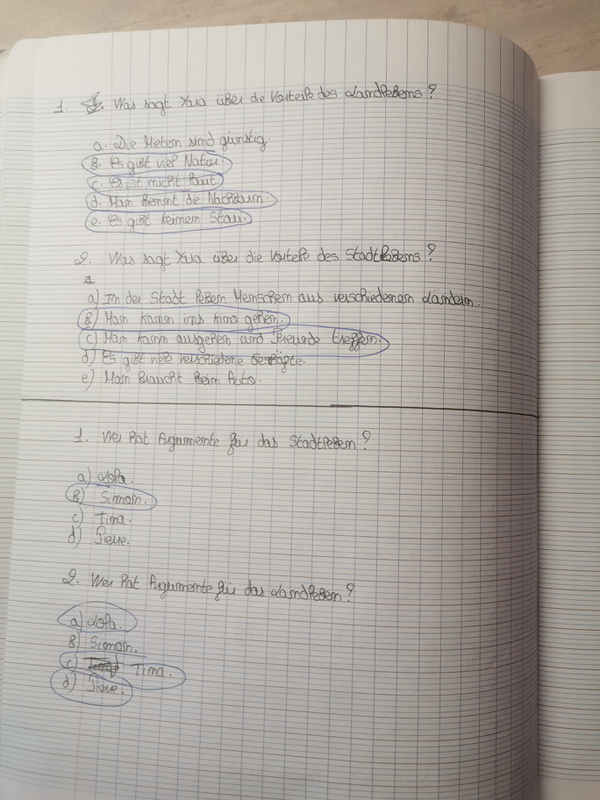 1. Was sagt Yara über die Vorteile des Landlebens?
a. Die Mieten sind günstig.
B. Es gibt viel Natur.
c. Es ist nicht laut.
d. Man kennt die Nachbarn.
e. Es gibt keinen Stau.
2. Was sagt Yara über die Vorteile des Stadtlebens?
a) In der Stadt leben Menschen aus verschiedenen Ländern.
B) Man kann ins Kino gehen.
c) Man kann ausgehen und Freunde treffen.
d) Es gibt viele verschiedene
e) Man braucht kein Auto.
1. Wer hat Argumente für das Stadtleben?
a)
B) Simon.
c) Tina.
d)
2. Wer hat Argumente für das Landleben?
a)
B) Simon.
c) Tina.
d)